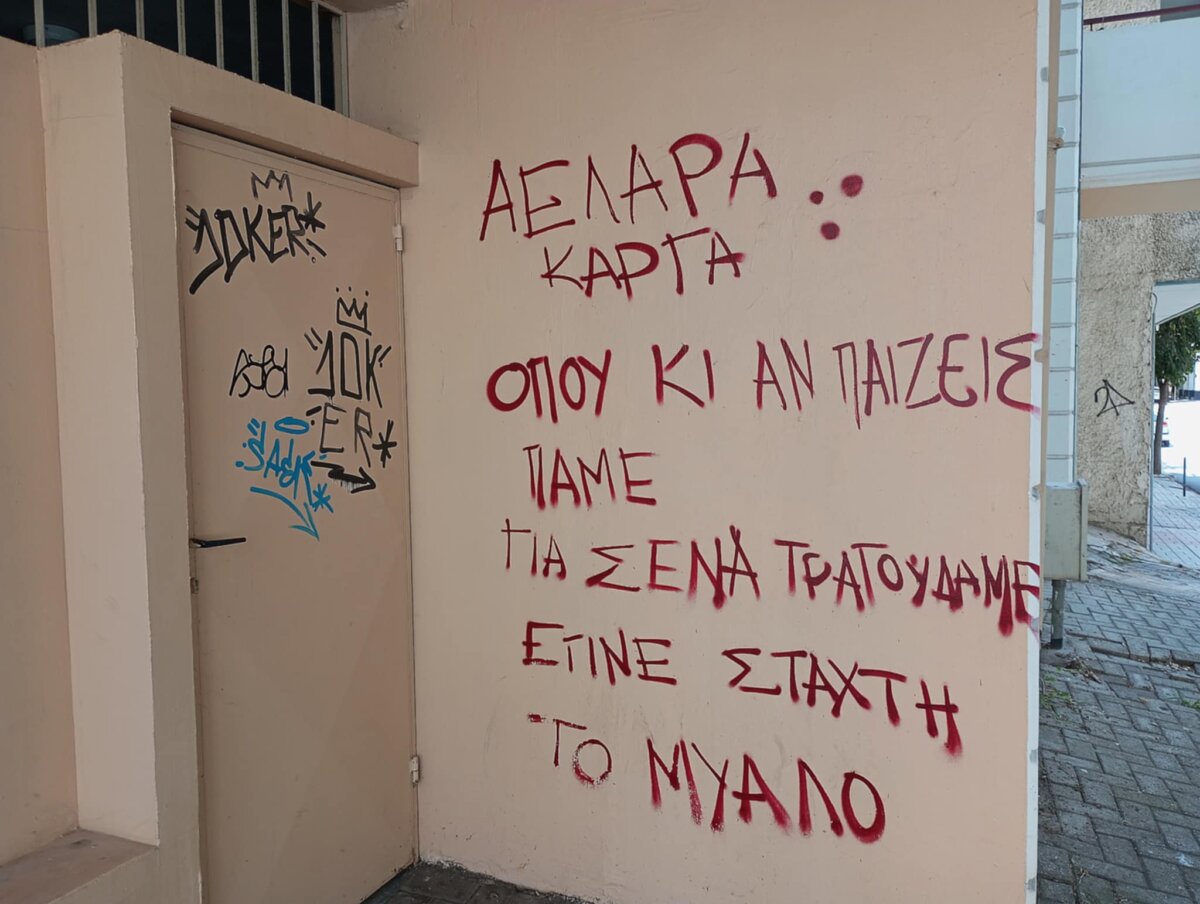 "JOKER*
"JOK"
ER*
"SAEK*
ΑΕΛΑΡΑ
ΚΑΡΓΑ
ΟΠΟΥ ΚΙ ΑΝ ΠΑΙΖΕΙΣ
ΠΑΜΕ
ΓΙΑ ΣΕΝΑ ΤΡΑΓΟΥΔΑΜΕ
ΕΓΙΝΕ ΣΤΑΧΤΗ
ΤΟ ΜΥΑΛΟ